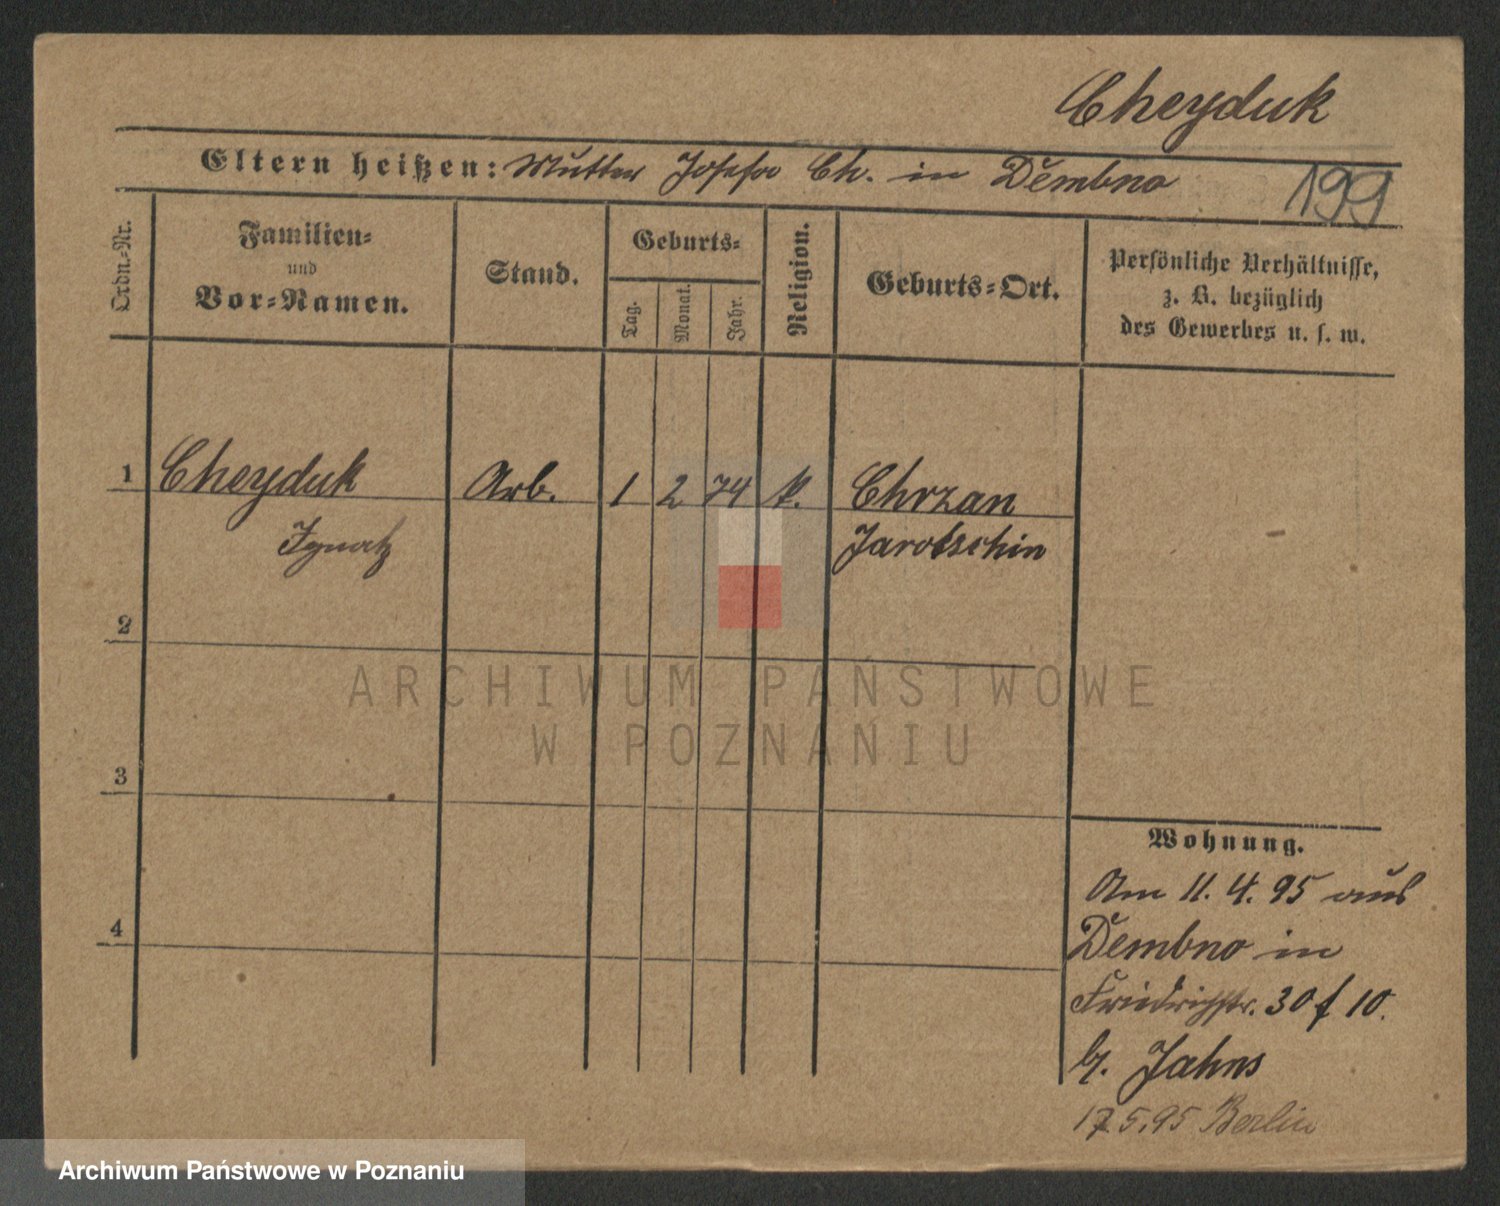 Cheyduk
Eltern heißen: Mutter Josefa Ch. in Dembno
199
Ordn.-Nr.
Familien-
und
Vor-Namen.
Stand.
Geburts-
Tag.
Monat.
Jahr.
Religion.
Geburts-Ort.
Persönliche Verhältnisse,
z. B. bezüglich
des Gewerbes u. s. w.
1 Cheyduk Arb. 1 2 74 k. Chrzan
Ignatz Jarotschin
2
3
4
Wohnung.
Am 11. 4. 95 aus
Dembno in
Friedrichstr. 30 f 10.
b. Jahns
17.5.95 Berlin
ARCHIWUM PAŃSTWOWE
W POZNANIU
Archiwum Państwowe w Poznaniu